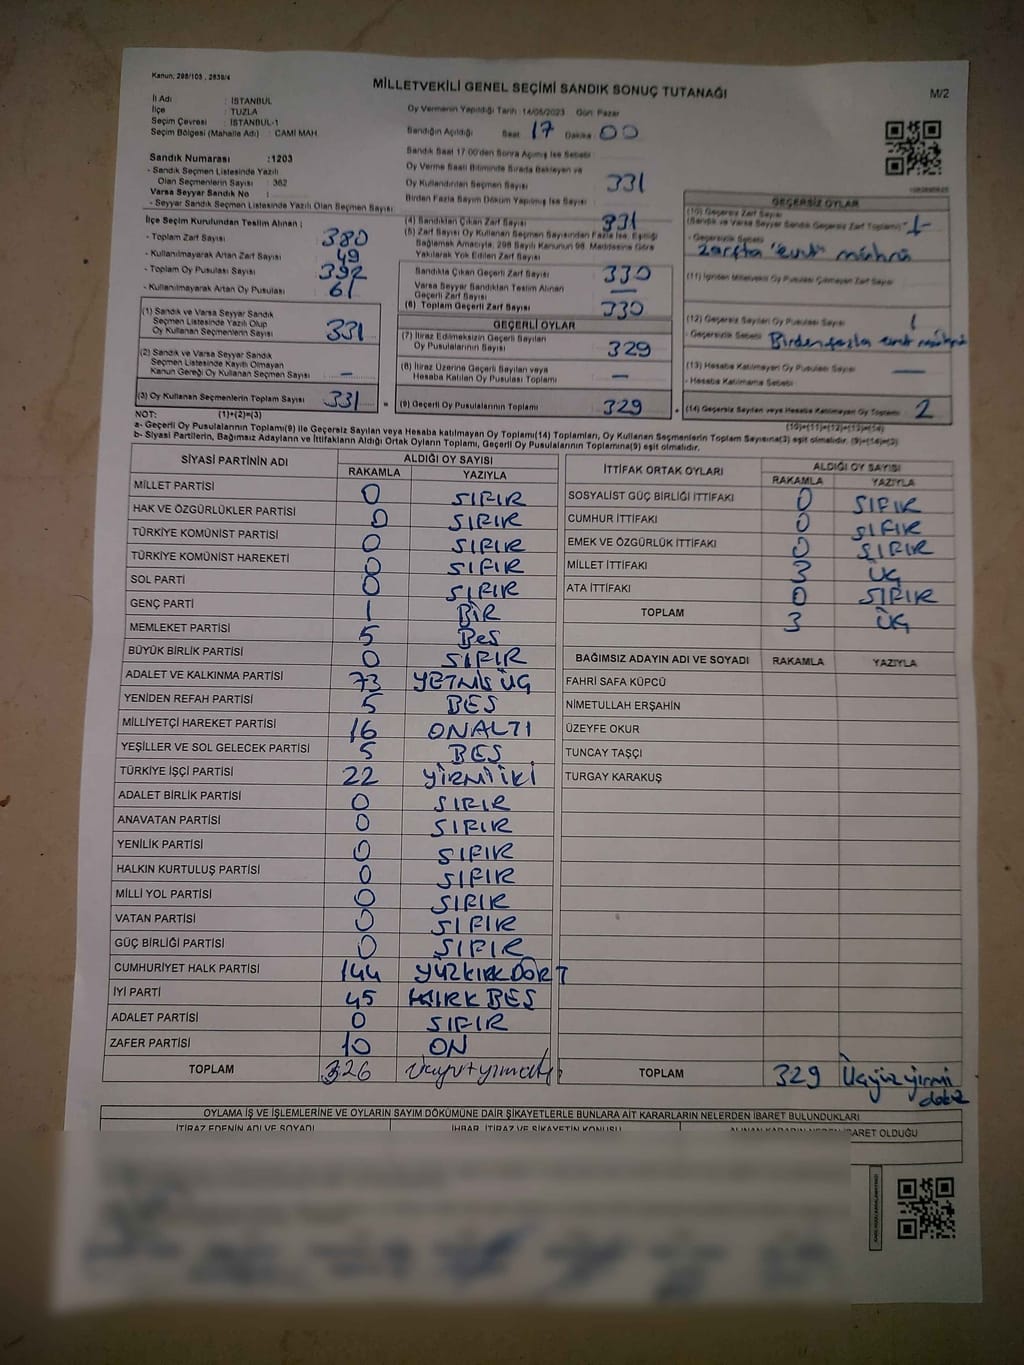 Kanun, 298/105 , 2839/4
MİLLETVEKİLİ GENEL SEÇİMİ SANDIK SONUÇ TUTANAĞI
M/2
İl Adı : İSTANBUL
İlçe : TUZLA
Seçim Çevresi : İSTANBUL-1
Seçim Bölgesi (Mahalle Adı) : CAMİ MAH.
Oy Vermenin Yapıldığı Tarih: 14/05/2023 Gün: Pazar
Sandığın Açıldığı Saat 17 Dakika 00
Sandık Saat 17:00'den Sonra Açılmış İse Sebebi
Sandık Numarası :1203
- Sandık Seçmen Listesinde Yazılı
Olan Seçmenlerin Sayısı : 362
Varsa Seyyar Sandık No :
- Seyyar Sandık Seçmen Listesinde Yazılı Olan Seçmen Sayısı
Oy Verme Saati Bitiminde Sırada Bekleyen ve
Oy Kullandırılan Seçmen Sayısı 331
Birden Fazla Sayım Döküm Yapılmış İse Sayısı
İlçe Seçim Kurulundan Teslim Alınan ;
- Toplam Zarf Sayısı 380
- Kullanılmayarak Artan Zarf Sayısı 49
- Toplam Oy Pusulası Sayısı 392
- Kullanılmayarak Artan Oy Pusulası 61
(1) Sandık ve Varsa Seyyar Sandık
Seçmen Listesinde Yazılı Olup
Oy Kullanan Seçmenlerin Sayısı 331
(2) Sandık ve Varsa Seyyar Sandık
Seçmen Listesinde Kayıtlı Olmayan
Kanun Gereği Oy Kullanan Seçmen Sayısı –
(3) Oy Kullanan Seçmenlerin Toplam Sayısı 331 =
(4) Sandıktan Çıkan Zarf Sayısı 331
(5) Zarf Sayısı Oy Kullanan Seçmen Sayısından Fazla ise, Eşitliği
Sağlamak Amacıyla, 298 Sayılı Kanunun 98. Maddesine Göre
Yakılarak Yok Edilen Zarf Sayısı
Sandıkta Çıkan Geçerli Zarf Sayısı 330
Varsa Seyyar Sandıktan Teslim Alınan
Geçerli Zarf Sayısı –
(6) Toplam Geçerli Zarf Sayısı 330
GEÇERLİ OYLAR
(7) İtiraz Edilmeksizin Geçerli Sayılan
Oy Pusulalarının Sayısı 329
(8) İtiraz Üzerine Geçerli Sayılan veya
Hesaba Katılan Oy Pusulası Toplamı –
(9) Geçerli Oy Pusulalarının Toplamı 329 +
GEÇERSİZ OYLAR
(10) Geçersiz Zarf Sayısı
(Sandık ve Varsa Seyyar Sandık Geçersiz Zarf Toplamı) 1
- Geçersizlik Sebebi
zarfta "evet" mührü
(12) Geçersiz Sayılan Oy Pusulası Sayısı 1
- Geçersizlik Sebebi Birden fazla evet mührü
(13) Hesaba Katılmayan Oy Pusulası Sayısı —
- Hesaba Katılmama Sebebi
(14) Geçersiz Sayılan veya Hesaba Katılmayan Oy Toplamı 2
NOT: (1)+(2)=(3)
(10)+(11)+(12)+(13)=(14)
a- Geçerli Oy Pusulalarının Toplamı(9) ile Geçersiz Sayılan veya Hesaba katılmayan Oy Toplamı(14) Toplamları, Oy Kullanan Seçmenlerin Toplam Sayısına(3) eşit olmalıdır. (9)+(14)=(3)
b- Siyasi Partilerin, Bağımsız Adayların ve İttifakların Aldığı Ortak Oyların Toplamı, Geçerli Oy Pusulalarının Toplamına(9) eşit olmalıdır.
SİYASİ PARTİNİN ADI ALDIĞI OY SAYISI
RAKAMLA YAZIYLA
MİLLET PARTİSİ 0 SIFIR
HAK VE ÖZGÜRLÜKLER PARTİSİ 0 SIFIR
TÜRKİYE KOMÜNİST PARTİSİ 0 SIFIR
TÜRKİYE KOMÜNİST HAREKETİ 0 SIFIR
SOL PARTİ 0 SIFIR
GENÇ PARTİ 1 BİR
MEMLEKET PARTİSİ 5 BEŞ
BÜYÜK BİRLİK PARTİSİ 0 SIFIR
ADALET VE KALKINMA PARTİSİ 73 YETMİŞ ÜÇ
YENİDEN REFAH PARTİSİ 5 BEŞ
MİLLİYETÇİ HAREKET PARTİSİ 16 ONALTI
YEŞİLLER VE SOL GELECEK PARTİSİ 5 BEŞ
TÜRKİYE İŞÇİ PARTİSİ 22 YİRMİ İKİ
ADALET BİRLİK PARTİSİ 0 SIFIR
ANAVATAN PARTİSİ 0 SIFIR
YENİLİK PARTİSİ 0 SIFIR
HALKIN KURTULUŞ PARTİSİ 0 SIFIR
MİLLİ YOL PARTİSİ 0 SIFIR
VATAN PARTİSİ 0 SIFIR
GÜÇ BİRLİĞİ PARTİSİ 0 SIFIR
CUMHURİYET HALK PARTİSİ 144 YÜZKIRKDÖRT
İYİ PARTİ 45 KIRK BEŞ
ADALET PARTİSİ 0 SIFIR
ZAFER PARTİSİ 10 ON
TOPLAM 326
İTTİFAK ORTAK OYLARI ALDIĞI OY SAYISI
RAKAMLA YAZIYLA
SOSYALİST GÜÇ BİRLİĞİ İTTİFAKI 0 SIFIR
CUMHUR İTTİFAKI 0 SIFIR
EMEK VE ÖZGÜRLÜK İTTİFAKI 0 SIFIR
MİLLET İTTİFAKI 3 ÜÇ
ATA İTTİFAKI 0 SIFIR
TOPLAM 3 ÜÇ
BAĞIMSIZ ADAYIN ADI VE SOYADI RAKAMLA YAZIYLA
FAHRİ SAFA KÜPCÜ
NİMETULLAH ERŞAHİN
ÜZEYFE OKUR
TUNCAY TAŞÇI
TURGAY KARAKUŞ
TOPLAM 329 Üçyüz yirmi
dokuz
OYLAMA İŞ VE İŞLEMLERİNE VE OYLARIN SAYIM DÖKÜMÜNE DAİR ŞİKAYETLERLE BUNLARA AİT KARARLARIN NELERDEN İBARET BULUNDUKLARI
İTİRAZ EDENİN ADI VE SOYADI İHBAR, İTİRAZ VE ŞİKAYETİN KONUSU ALINAN KARARIN NEDEN İBARET OLDUĞU